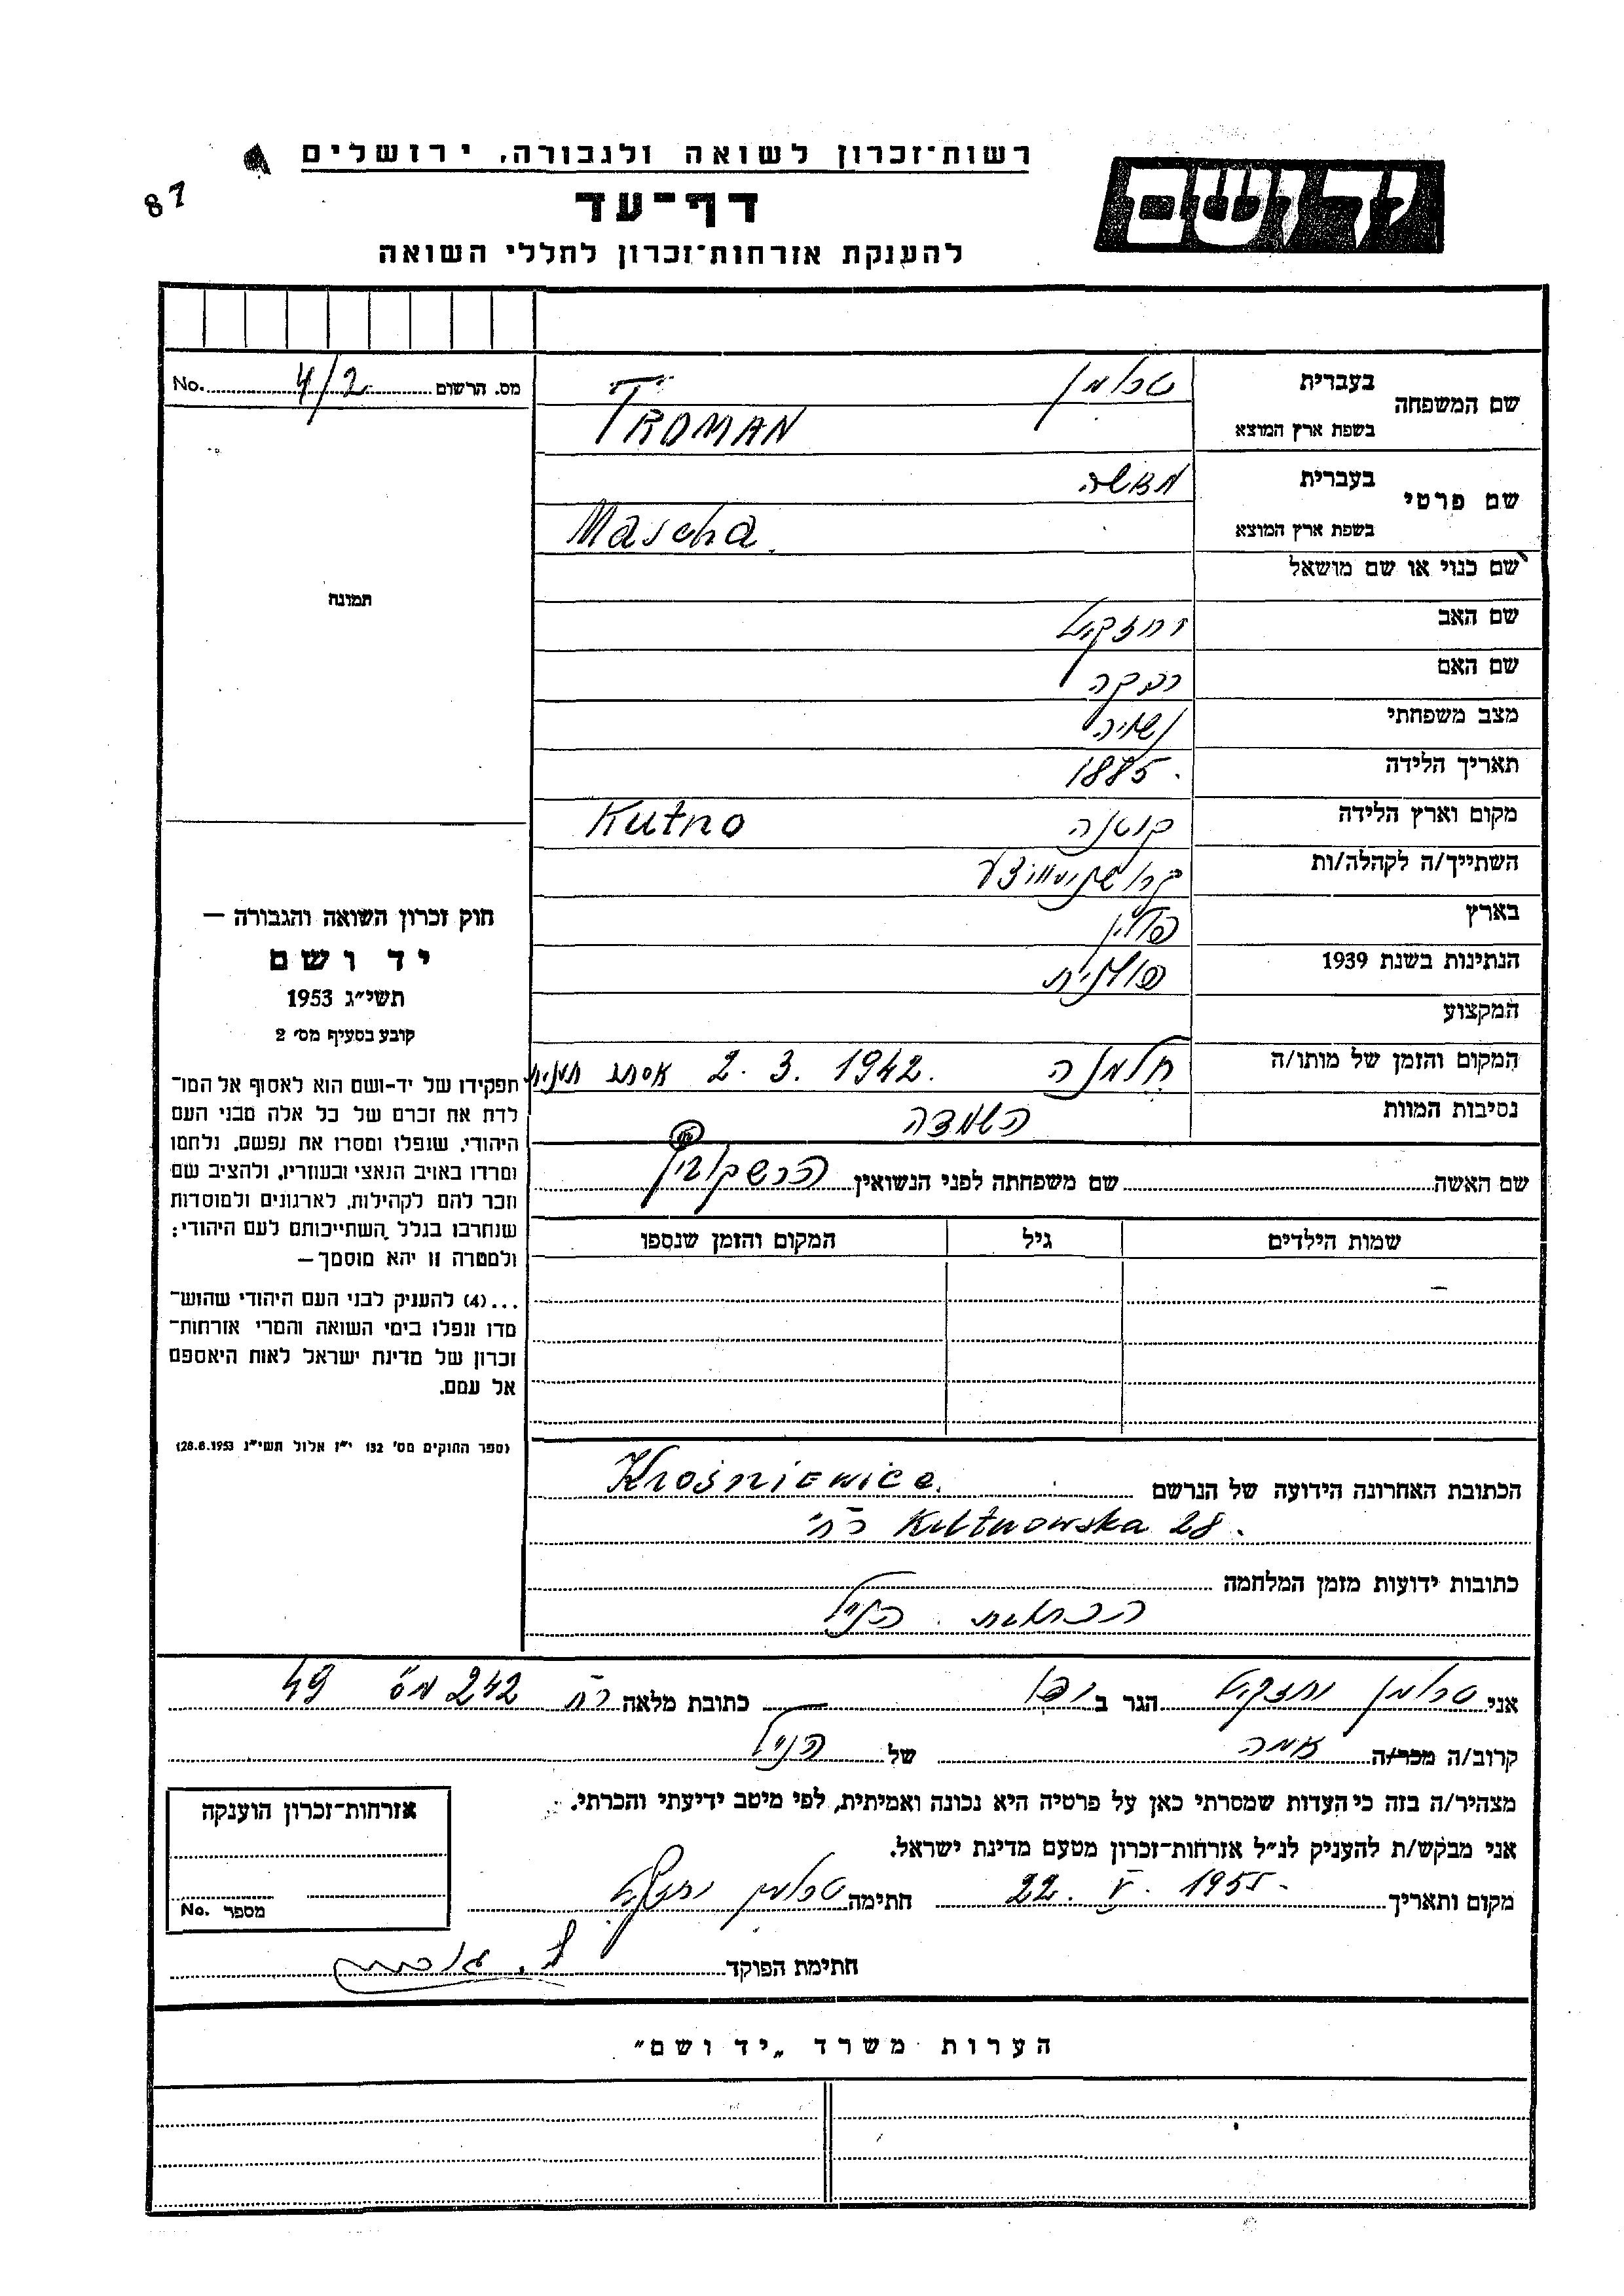 רשות־זכרון לשואה ולגבורה, ירושלים
87
דף־עד
להענקת אזרחות־זכרון לחללי השואה
יד ושם
שם המשפחה בעברית טרומן
בשפת ארץ המוצא TROMAN
מס. הרשום 4/2 No.
שם פרטי בעברית מאשה
בשפת ארץ המוצא Mascha
שם כנוי או שם מושאל
תמונה
שם האב יחזקאל
שם האם רבקה
מצב משפחתי נשואה
תאריך הלידה 1885.
מקום וארץ הלידה קוטנה Kutno
השתייך/ה לקהלה/ות
בארץ פולין
הנתינות בשנת 1939 פולנית
המקצוע
המקום והזמן של מותו/ה חלמנה 2. 3. 1942. אסתר תענית
נסיבות המוות השמדה
שם האשה שם משפחתה לפני הנשואין
שמות הילדים גיל המקום והזמן שנספו
חוק זכרון השואה והגבורה —
יד ושם
תשי"ג 1953
קובע בסעיף מס' 2
תפקידו של יד-ושם הוא לאסוף אל המו־
לדת את זכרם של כל אלה מבני העם
היהודי, שנפלו ומסרו את נפשם, נלחמו
ומרדו באויב הנאצי ובעוזריו, ולהציב שם
וזכר להם לקהילות, לארגונים ולמוסדות
שנחרבו בגלל השתייכותם לעם היהודי;
ולמטרה זו יהא מוסמך —
...(4) להעניק לבני העם היהודי שהוש־
מדו ונפלו בימי השואה והמרי אזרחות־
זכרון של מדינת ישראל לאות היאספם
אל עמם.
(ספר החוקים מס' 132 י"ז אלול תשי"ג 28.8.1953)
הכתובת האחרונה הידועה של הנרשם Krośniewice
רח' Kutnowska 28.
כתובות ידועות מזמן המלחמה
הכתובת הנ"ל
אני טרומן יחזקאל הגר ב יפו כתובת מלאה רח 242 מס 49
קרוב/ה מכר/ה אמה של הנ"ל
מצהיר/ה בזה כי העדות שמסרתי כאן על פרטיה היא נכונה ואמיתית, לפי מיטב ידיעתי והכרתי.
אני מבקש/ת להעניק לנ"ל אזרחות־זכרון מטעם מדינת ישראל.
מקום ותאריך 22. V. 1955. חתימה טרומן יחזקאל
חתימת הפוקד
אזרחות־זכרון הוענקה
מספר No.
הערות משרד „יד ושם"